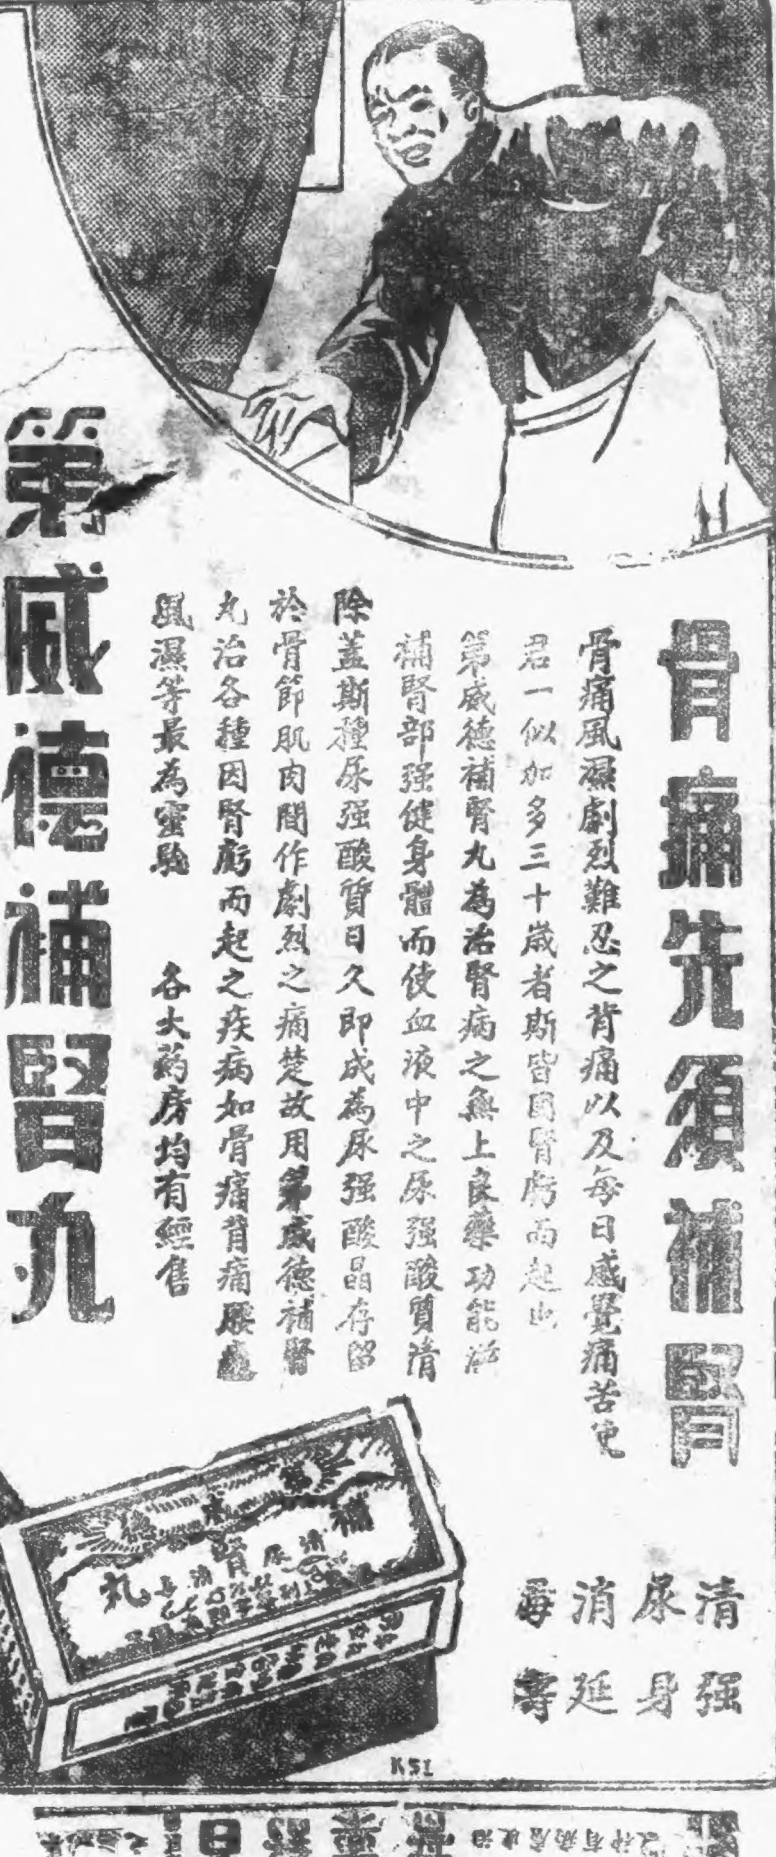 骨痛先須補腎
骨痛風濕劇烈難忍之背痛以及每日感覺痛苦使
君一似加多三十歲者斯皆因腎虧而起也
第威德補腎丸為治腎病之無上良藥功能滋
補腎部强健身體而使血液中之尿强酸質清
除蓋斯種尿强酸質日久即成為尿强酸晶存留
於骨節肌肉間作劇烈之痛楚故用第威德補腎
丸治各種因腎虧而起之疾病如骨痛背痛腰痛
風濕等最為靈驗 各大药房均有經售
第威德補腎丸
清尿消毒
强身延壽
補腎丸
KSI